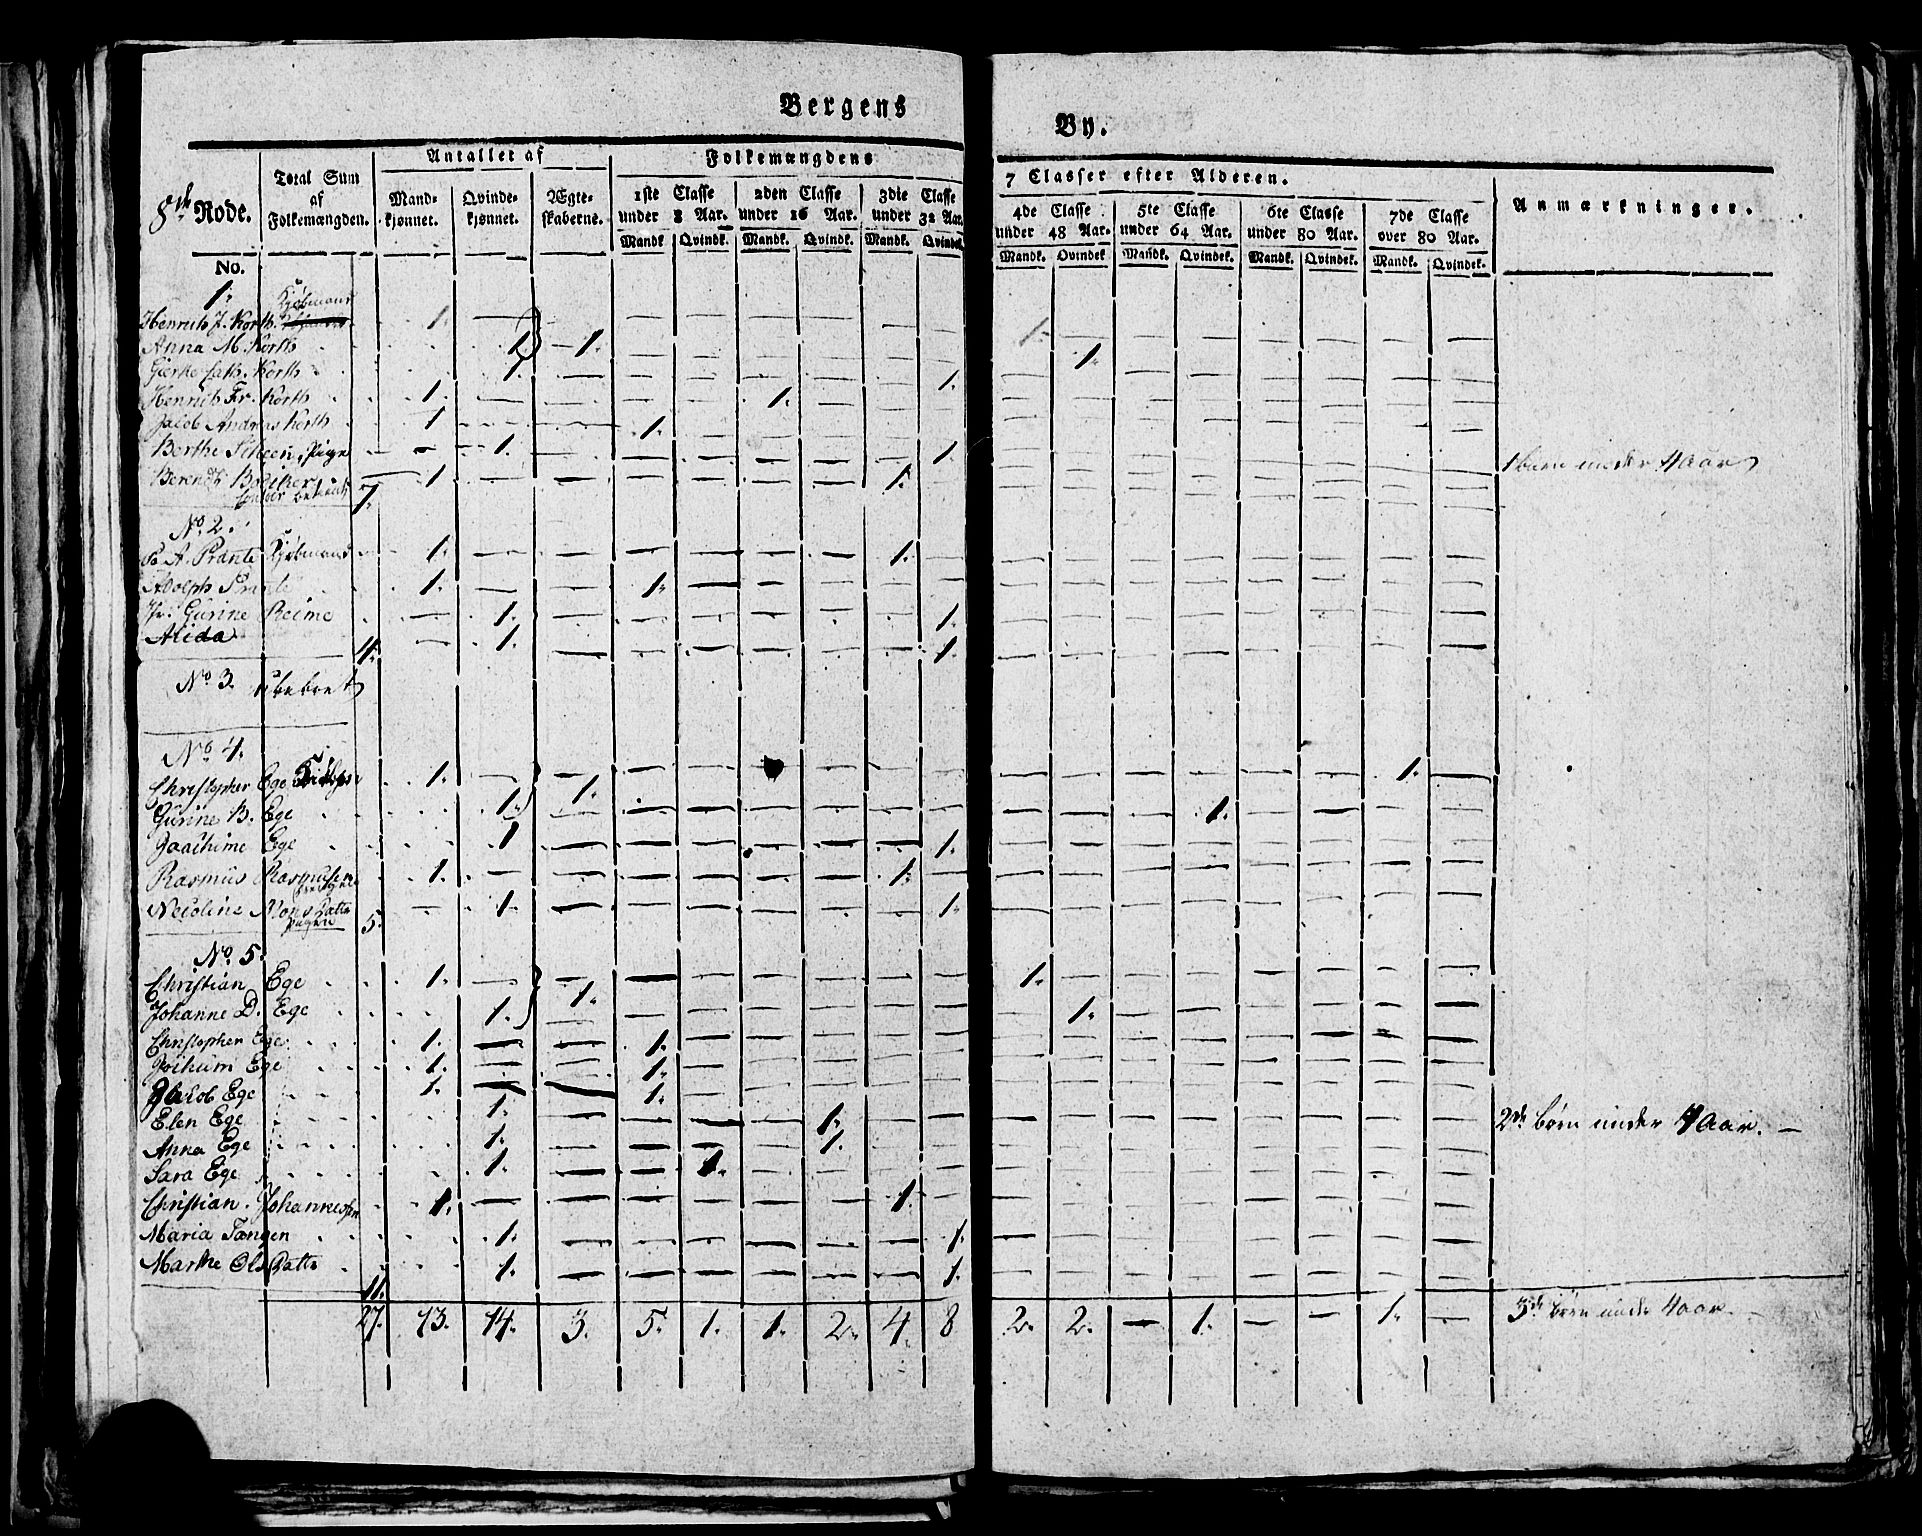 Bergens By.
8de Rode.
Total Sum af Folkemængden.
Antallet af
Mandkjønnet.
Qvindekjønnet.
Ægteskaberne.
Folkemængdens 7 Classer efter Alderen.
1ste Classe under 8 Aar.
2den Classe under 16 Aar.
3die Classe under 32 Aar.
4de Classe under 48 Aar.
5te Classe under 64 Aar.
6te Classe under 80 Aar.
7de Classe over 80 Aar.
Anmærkninger.
Mandk. Qvindk. Mandk. Qvindk. Mandk. Qvindek. Mandk. Qvindek. Mandk. Qvindek. Mandk. Qvindek. Mandk. Qvindek.
No.
1. Kjøbmand
Henrich J. Korth. 1. — — — — — — — 1. — — — — — — —
Anna M. Korth 1. — 1. 1.
Gjerke Cath. Korth 1. — — — — — — 1.
Henrich Fr. Korth 1. — — — — 1. — — —
Jacob Andreas Korth 1 — — 1. — — — — —
Berthe Scheen, Pige — 1. — — — — — — 1. 1 barn under 4 Aar
Berendt Bødtker 1. — — — — — — 1. —
7.
No. 2.
A. Prante Kjøbmand 1. — — — — — — 1. —
Adolph Prante 1. — — 1. — — — — —
Jfr. Gurine Reime — 1. — — — — — — 1.
Alida — 1. — — — — — — 1.
4.
No. 3. ubeboet
No. 4.
Christopher Ege 1. — — — — — — — — — — — — — 1. —
Gurine B. Ege 1. 1. — — — — — — — — — 1. — — — —
Joachime Ege 1 — — — — — — 1.
Rasmus Rasmusen 1. — — — — — — 1. —
Nicoline Mons Datter — 1. — — — — — — 1.
5.
No. 5.
Christian Ege 1. — — — — — — — 1. — — — — — — —
Johanne D. Ege 1. 1. — — — — — — — 1. — — — — — —
Christopher Ege 1. — — 1. — — — — —
Jochum Ege 1. — — 1. — — — — —
Jacob Ege 1. — — 1. — — — — —
Elen Ege 1. — — — — 1. — — 2de børn under 4 Aar. —
Anna Ege 1. — — — — 1. — —
Sara Ege 1. — — 1. — — — —
Christian Johannessen 1. — — — — — — 1. —
Maria Tangen 1. — — — — — — 1.
Marthe Ols Datter 1. — — — — — — 1.
11.
27. 13. 14. 3. 5. 1. 1. 2. 4. 8 2. 2. — 1. — — 1. — 3de børn under 4 aar.